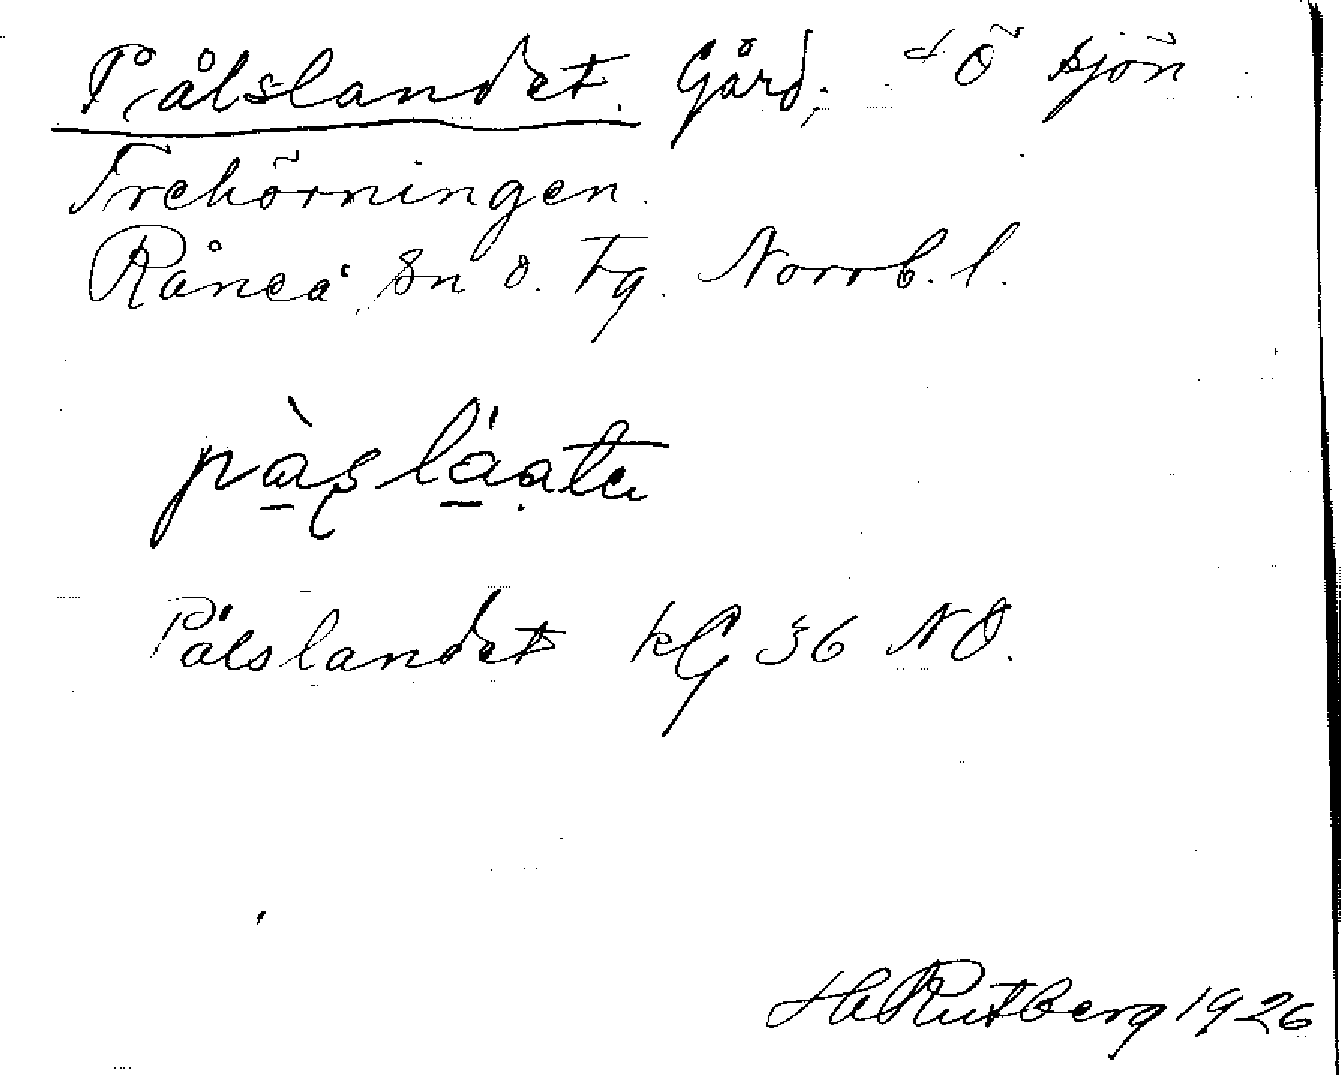 Pålslandet. Gård, Ö sjön
Trehörningen.
Råneå sn o. tg. Norrb. l.
Pålslandet kG 36 NO.
H Rutberg 1926